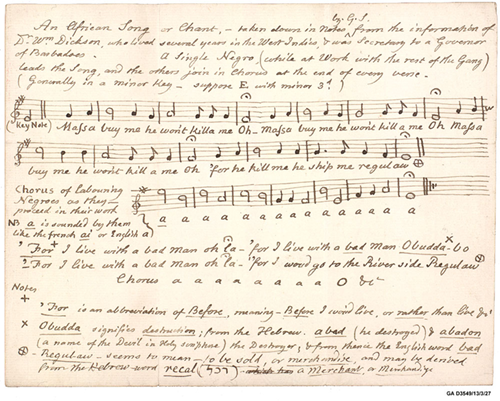 by G.S.
An African Song or Chant, – taken down in Notes, from the information of
Dr. Wm. Dickson, who lived several years in the West Indies, & was Secretary to a Governor
of Barbadoes. A Single Negro (while at Work with the rest of the Gang)
leads the Song, and the others join in Chorus at the end of every verse.
(Generally in a minor Key – suppose E with minor 3d.)
(Key Note) Massa buy me he won't killa me Oh – Massa buy me he won't killa me Oh Massa
buy me he won't killa me Oh 'for he kill me he ship me regulaw
Chorus of labouring
Negroes as they
proceed in their work
a a a a a a a a
NB a is sounded by them
like the french ai or English a)
'For I live with a bad man oh la – 'for I live with a bad man Obudda-bo
'For I live with a bad man oh la – 'for I wou'd go to the River side Regulaw
Chorus a a a a a a a O &c
Notes
+ 'For is an abbreviation of Before, meaning – Before I wou'd live, or rather than live &c
× Obudda signifies destruction; from the Hebrew. abad (he destroyed) & abadon
(a name of the Devil in Holy scripture) the Destroyer, & from thence the English word bad
Regulaw – seems to mean – to be sold, or merchandise, and may be derived
from the Hebrew word recal (רכל) a Merchant, or Merchandize
GA D3549/13/3/27